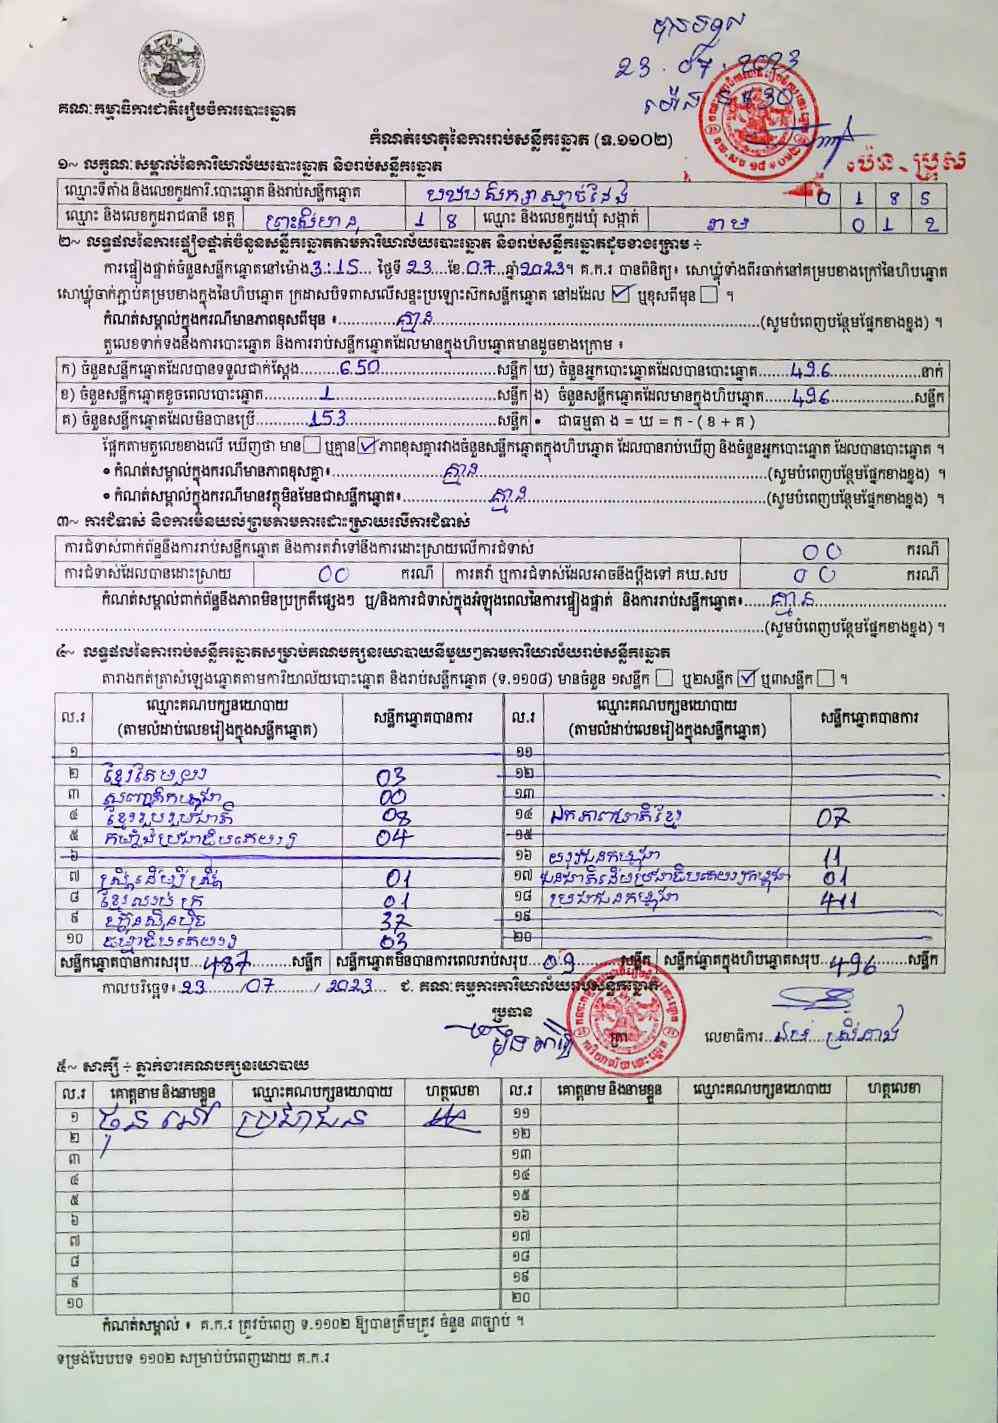 បានទទួល
23.07.2023
ម៉ោង 5:30
គណៈកម្មាធិការជាតិរៀបចំការបោះឆ្នោត
កំណត់ហេតុនៃការរាប់សន្លឹកឆ្នោត (ទ.១១០២)
ប៉េន-ប្រុស
១~ លក្ខណៈសម្គាល់នៃការិយាល័យបោះឆ្នោត និងរាប់សន្លឹកឆ្នោត
ឈ្មោះទីតាំង និងលេខកូដការិ.បោះឆ្នោត និងរាប់សន្លឹកឆ្នោត 0 1 8 5
ឈ្មោះ និងលេខកូដរាជធានី ខេត្ត ព្រះសីហនុ 1 8 ឈ្មោះ និងលេខកូដឃុំ សង្កាត់ រាម 0 1 2
២~ លទ្ធផលនៃការផ្ទៀងផ្ទាត់ចំនួនសន្លឹកឆ្នោតតាមការិយាល័យបោះឆ្នោត និងរាប់សន្លឹកឆ្នោតដូចខាងក្រោម ÷
ការផ្ទៀងផ្ទាត់ចំនួនសន្លឹកឆ្នោតនៅម៉ោង 3:15 ថ្ងៃទី 23 ខែ 07 ឆ្នាំ 2023។ គ.ក.រ បានពិនិត្យ៖ សោឃ្មុំទាំងពីរចាក់នៅគម្របខាងក្រៅនៃហិបឆ្នោត
សោឃ្មុំចាក់ភ្ជាប់គម្របខាងក្នុងនៃហិបឆ្នោត ក្រដាសបិទពាសលើសន្ទះប្រឡោះស៊កសន្លឹកឆ្នោត នៅដដែល ☑ ឬខុសពីមុន ☐ ។
កំណត់សម្គាល់ក្នុងករណីមានភាពខុសពីមុន ៖ គ្មាន (សូមបំពេញបន្ថែមផ្នែកខាងខ្នង) ។
តួលេខទាក់ទងនឹងការបោះឆ្នោត និងការរាប់សន្លឹកឆ្នោតដែលមានក្នុងហិបឆ្នោតមានដូចខាងក្រោម ៖
ក) ចំនួនសន្លឹកឆ្នោតដែលបានទទួលជាក់ស្តែង 650 សន្លឹក ឃ) ចំនួនអ្នកបោះឆ្នោតដែលបានបោះឆ្នោត 496 នាក់
ខ) ចំនួនសន្លឹកឆ្នោតខូចពេលបោះឆ្នោត 1 សន្លឹក ង) ចំនួនសន្លឹកឆ្នោតដែលមានក្នុងហិបឆ្នោត 496 សន្លឹក
គ) ចំនួនសន្លឹកឆ្នោតដែលមិនបានប្រើ 153 សន្លឹក • ជាធម្មតា ង = ឃ = ក - ( ខ + គ )
ផ្អែកតាមតួលេខខាងលើ ឃើញថា មាន ☐ ឬគ្មាន ☑ ភាពខុសគ្នារវាងចំនួនសន្លឹកឆ្នោតក្នុងហិបឆ្នោត ដែលបានរាប់ឃើញ និងចំនួនអ្នកបោះឆ្នោត ដែលបានបោះឆ្នោត ។
• កំណត់សម្គាល់ក្នុងករណីមានភាពខុសគ្នា៖ គ្មាន (សូមបំពេញបន្ថែមផ្នែកខាងខ្នង) ។
• កំណត់សម្គាល់ក្នុងករណីមានវត្ថុមិនមែនជាសន្លឹកឆ្នោត៖ គ្មាន (សូមបំពេញបន្ថែមផ្នែកខាងខ្នង) ។
៣~ ការជំទាស់ និងការមិនយល់ព្រមតាមការដោះស្រាយលើការជំទាស់
ការជំទាស់ពាក់ព័ន្ធនឹងការរាប់សន្លឹកឆ្នោត និងការតវ៉ាទៅនឹងការដោះស្រាយលើការជំទាស់ 00 ករណី
ការជំទាស់ដែលបានដោះស្រាយ 00 ករណី ការតវ៉ា ឬការជំទាស់ដែលអាចនឹងប្តឹងទៅ គឃ.សប 00 ករណី
កំណត់សម្គាល់ពាក់ព័ន្ធនឹងភាពមិនប្រក្រតីផ្សេងៗ ឬ/និងការជំទាស់ក្នុងអំឡុងពេលនៃការផ្ទៀងផ្ទាត់ និងការរាប់សន្លឹកឆ្នោត៖ គ្មាន
(សូមបំពេញបន្ថែមផ្នែកខាងខ្នង) ។
៤~ លទ្ធផលនៃការរាប់សន្លឹកឆ្នោតសម្រាប់គណបក្សនយោបាយនីមួយៗតាមការិយាល័យរាប់សន្លឹកឆ្នោត
តារាងកត់ត្រាសំឡេងឆ្នោតតាមការិយាល័យបោះឆ្នោត និងរាប់សន្លឹកឆ្នោត (ទ.១១០៨) មានចំនួន ១សន្លឹក ☐ ឬ២សន្លឹក ☑ ឬ៣សន្លឹក ☐ ។
ល.រ ឈ្មោះគណបក្សនយោបាយ (តាមលំដាប់លេខរៀងក្នុងសន្លឹកឆ្នោត) សន្លឹកឆ្នោតបានការ ល.រ ឈ្មោះគណបក្សនយោបាយ (តាមលំដាប់លេខរៀងក្នុងសន្លឹកឆ្នោត) សន្លឹកឆ្នោតបានការ
១ ១១
២ ខ្មែរតែមួយ 03 ១២
៣ 00 ១៣
៤ ខ្មែររួបរួមជាតិ 08 ១៤ ឯកភាពជាតិខ្មែរ 07
៥ កម្លាំងប្រជាធិបតេយ្យ 04 ១៥
៦ ១៦ យុវជនកម្ពុជា 11
៧ ស្ត្រីដើម្បីស្ត្រី 01 ១៧ ជនជាតិដើមប្រជាធិបតេយ្យកម្ពុជា 01
៨ ខ្មែរឈប់ក្រ 01 ១៨ ប្រជាជនកម្ពុជា 411
៩ ហ្វ៊ុនស៊ិនប៉ិច 37 ១៩
១០ ធម្មាធិបតេយ្យ 03 ២០
សន្លឹកឆ្នោតបានការសរុប 487 សន្លឹក សន្លឹកឆ្នោតមិនបានការពេលរាប់សរុប 09 សន្លឹក សន្លឹកឆ្នោតក្នុងហិបឆ្នោតសរុប 496 សន្លឹក
កាលបរិច្ឆេទ៖ 23/07/2023 ជ. គណៈកម្មការការិយាល័យរាប់សន្លឹកឆ្នោត
ប្រធាន
ត្រា លេខាធិការ
៥~ សាក្សី ÷ ភ្នាក់ងារគណបក្សនយោបាយ
ល.រ គោត្តនាម និងនាមខ្លួន ឈ្មោះគណបក្សនយោបាយ ហត្ថលេខា ល.រ គោត្តនាម និងនាមខ្លួន ឈ្មោះគណបក្សនយោបាយ ហត្ថលេខា
១ ប្រជាជន ១១
២ ១២
៣ ១៣
៤ ១៤
៥ ១៥
៦ ១៦
៧ ១៧
៨ ១៨
៩ ១៩
១០ ២០
កំណត់សម្គាល់ ៖ គ.ក.រ ត្រូវបំពេញ ទ.១១០២ ឱ្យបានត្រឹមត្រូវ ចំនួន ៣ច្បាប់ ។
ទម្រង់បែបបទ ១១០២ សម្រាប់បំពេញដោយ គ.ក.រ